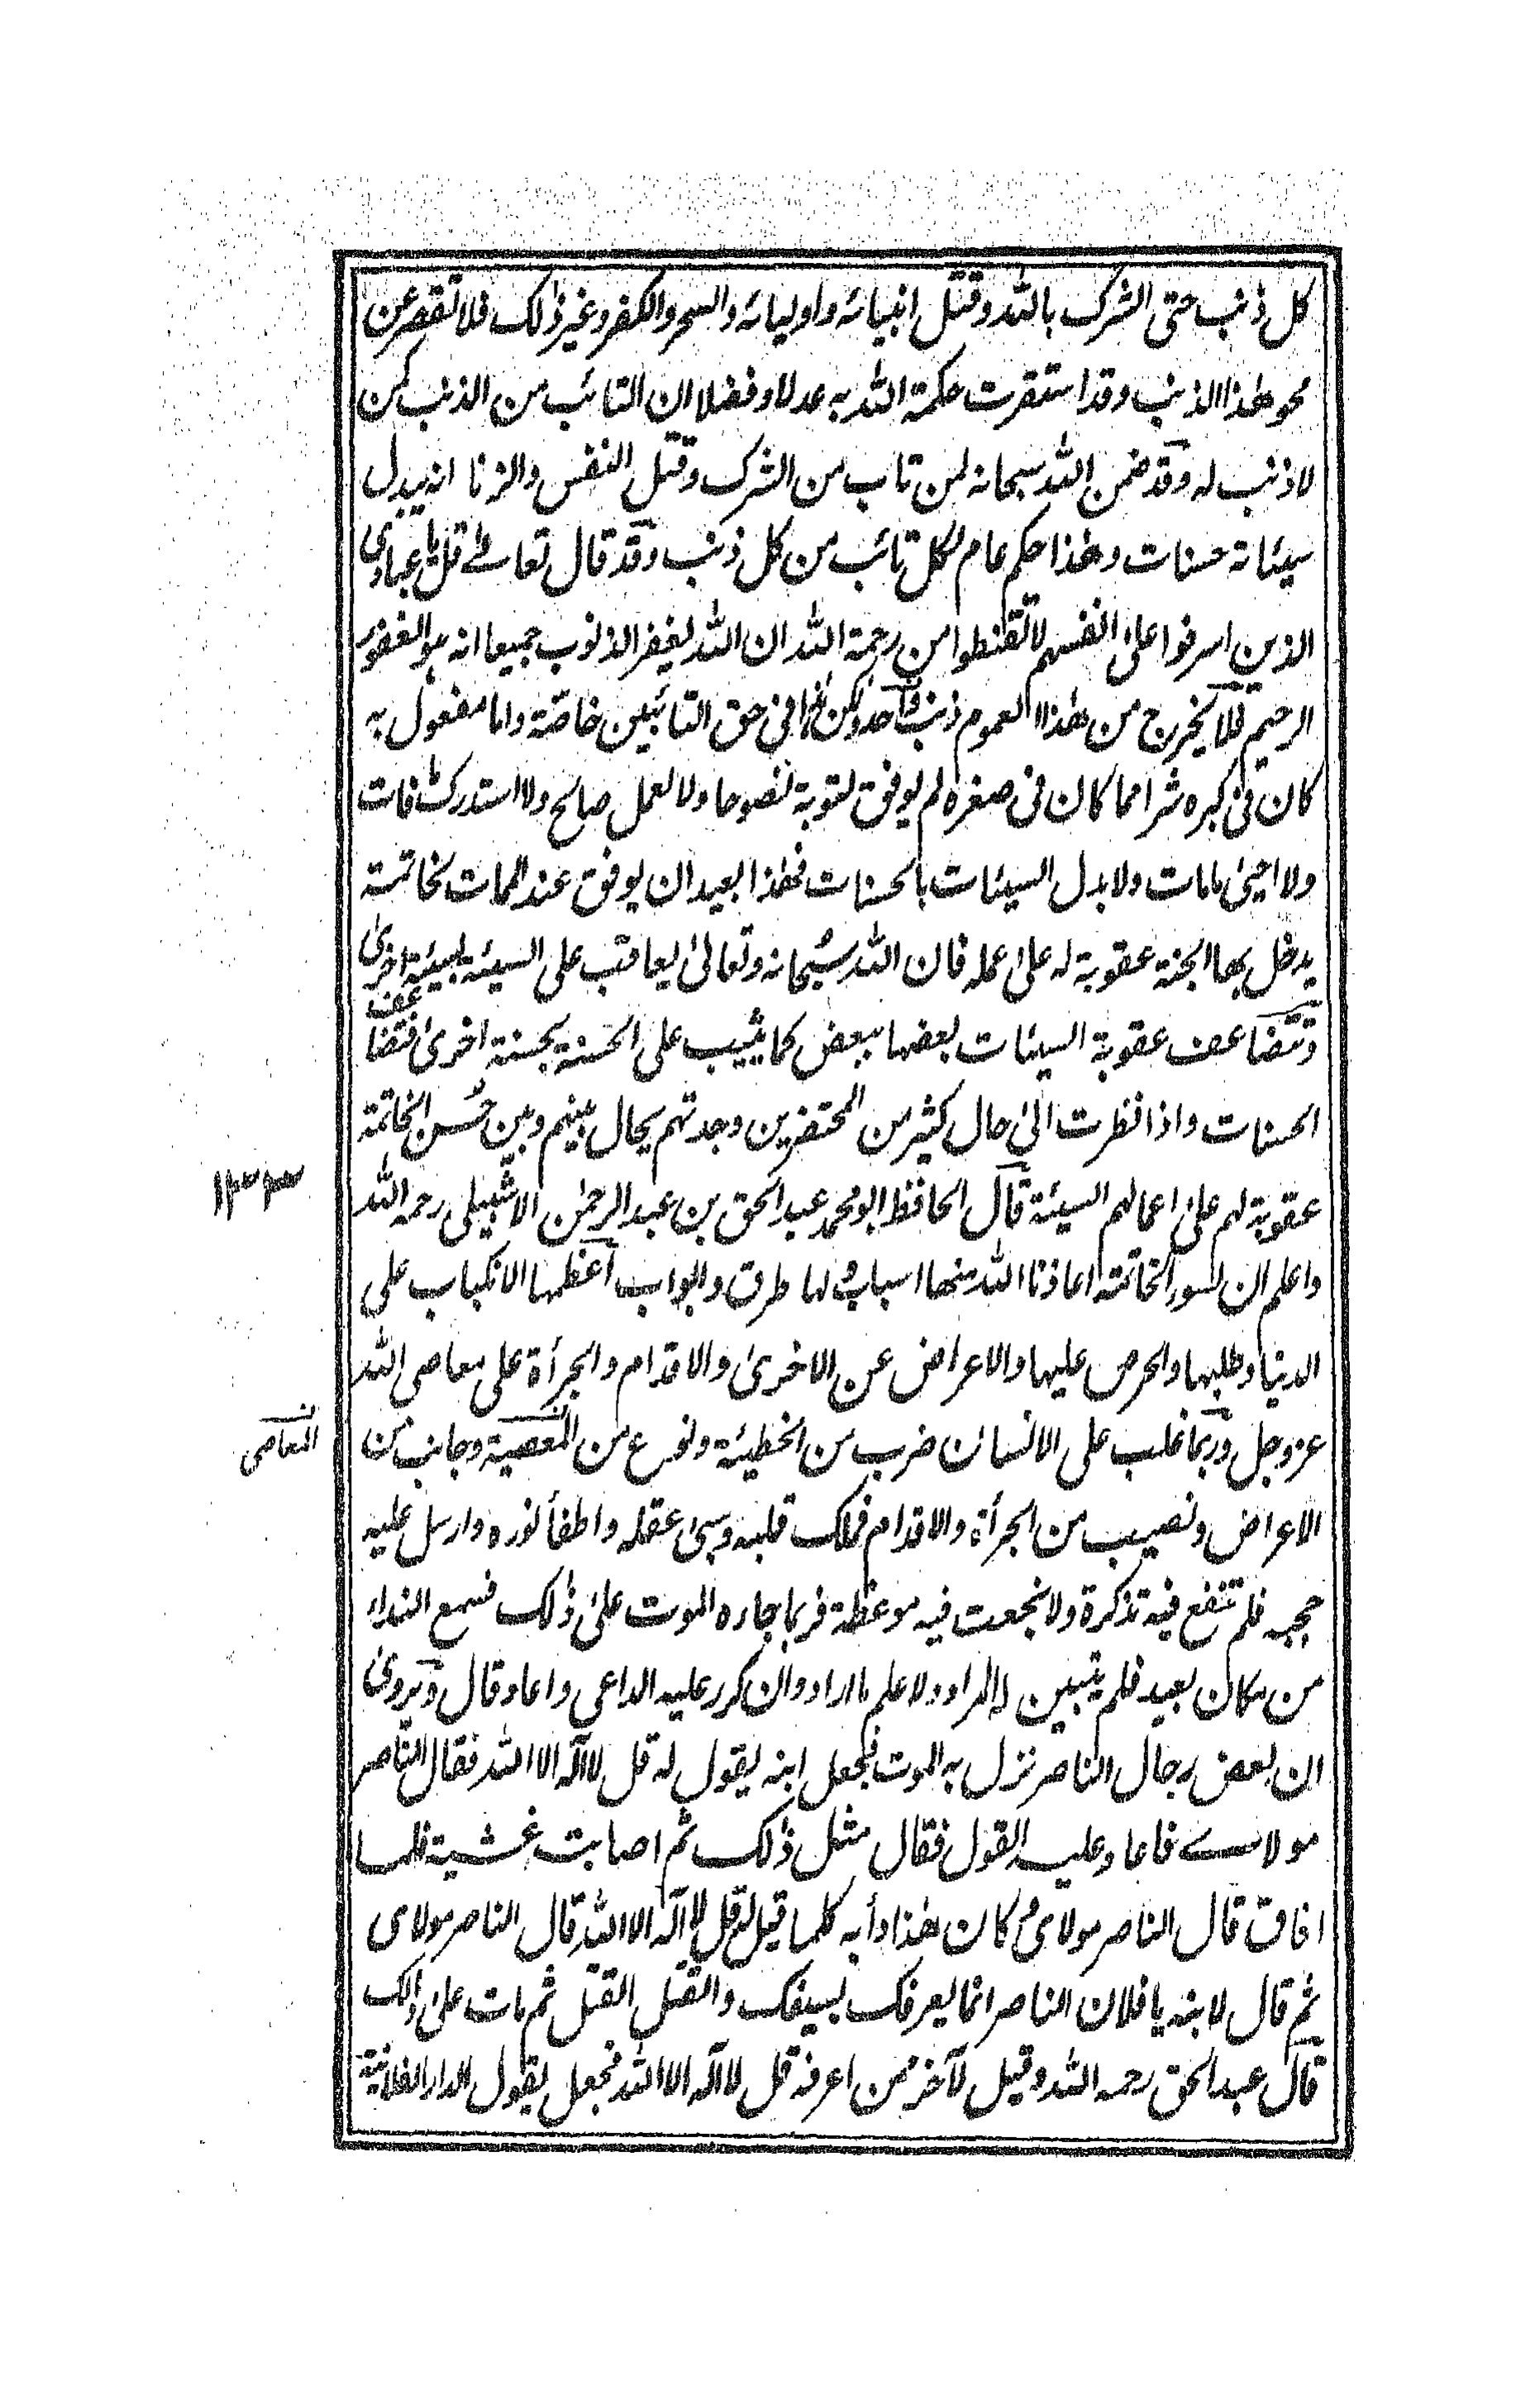 كل ذنب حتى الشرك بالله وقتل انبيائه واوليائه والسحر والكفر وغير ذلك فلا تقصر عن
محو هذا الذنب وقد استقرت حكمة الله به عدلا وفضلا ان التائب من الذنب كمن
لا ذنب له وقد ضمن الله سبحانه لمن تاب من الشرك وقتل النفس والزنا انه يبدل
سيئاته حسنات وهذا حكم عام لكل تائب من كل ذنب وقد قال تعالى قل يا عبادى
الذين اسرفوا على انفسهم لا تقنطوا من رحمة الله ان الله يغفر الذنوب جميعا انه هو الغفور
الرحيم فلا يخرج من هذا العموم ذنب واحد ولكن هذا فى حق التائبين خاصّة واما مفعول به
كان فى كبره شرا مما كان فى صغره لم يوفق لتوبة نصوحا ولا لعمل صالح ولا استدرك ما فات
ولا احيى ما مات ولا بدل السيئات بالحسنات فهذا بعيد ان يوفق عند الممات لخاتمة
يدخل بها الجنة عقوبة له على عمله فان الله سُبحانه وتعالى يعاقب على السيئة بسيئة اخرى
وتتضاعف عقوبة السيئات بعضها ببعض كما يثيب على الحسنة بحسنة اخرى فتضاعف
الحسنات واذا نظرت الى حال كثير من المحتضرين وجدتهم يحال بينهم وبين حُسن الخاتمة
عقوبة لهم على اعمالهم السيئة قال الحافظ ابو محمد عبد الحق بن عبد الرحمن الاشبيلى رحمه الله
١٣٣
واعلم ان لسوء الخاتمة اعاذنا الله منها اسبابٌ ولها طرق وابواب اعظمها الانكباب على
الدنيا وطلبها والحرص عليها والاعراض عن الاخرى والاقدام والجرأة على معاصى الله
عز وجل وربما غلب على الانسان ضرب من الخطيئة ونوع من المعصية وجانب من
المعاصى
الاعراض ونصيب من الجرأة والاقدام فملك قلبه وسبى عقله واطفأ نوره وارسل عليه
حجبه فلم تنفع فيه تذكرة ولا نجعت فيه موعظة فربما جاءه الموت على ذلك فسمع النداء
من مكان بعيد فلم يتبين له المراد ولا علم ما اراد وان كرر عليه الداعى واعاد قال ويروى
ان بعض رجال الناصر نزل به الموت فجعل ابنه يقول له قل لا اله الا الله فقال الناصر
مولاے فاعاد عليه القول فقال مثل ذلك ثم اصابت غشية فلما
افاق قال الناصر مولاى وكان هذا دأبه كلما قيل له قل لا اله الا الله قال الناصر مولاى
ثم قال لابنه يا فلان الناصر انما يعرفك بسيفك والقتل القتل ثم مات على ذلك
قال عبد الحق رحمه الله وقيل لآخر ممن اعرفه قل لا اله الا الله فجعل يقول الدار الفلانية